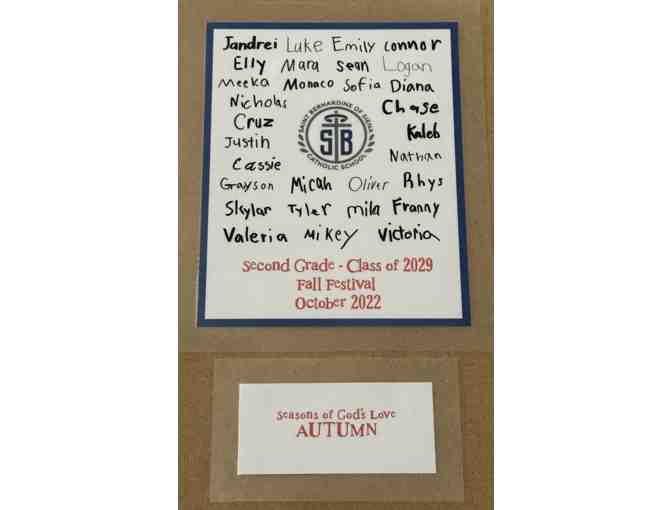 Jandrei Luke Emily connor
Elly Mara sean Logan
Meeka Monaco Sofia Diana
Nicholas Chase
Cruz
SAINT BERNARDINE OF SIENA
SB
CATHOLIC SCHOOL
Kaleb
Justin
Nathan
Cassie
Grayson Micah Oliver Rhys
Skylar Tyler mila Franny
Valeria Mikey Victoria
Second Grade - Class of 2029
Fall Festival
October 2022
Seasons of God's Love
AUTUMN